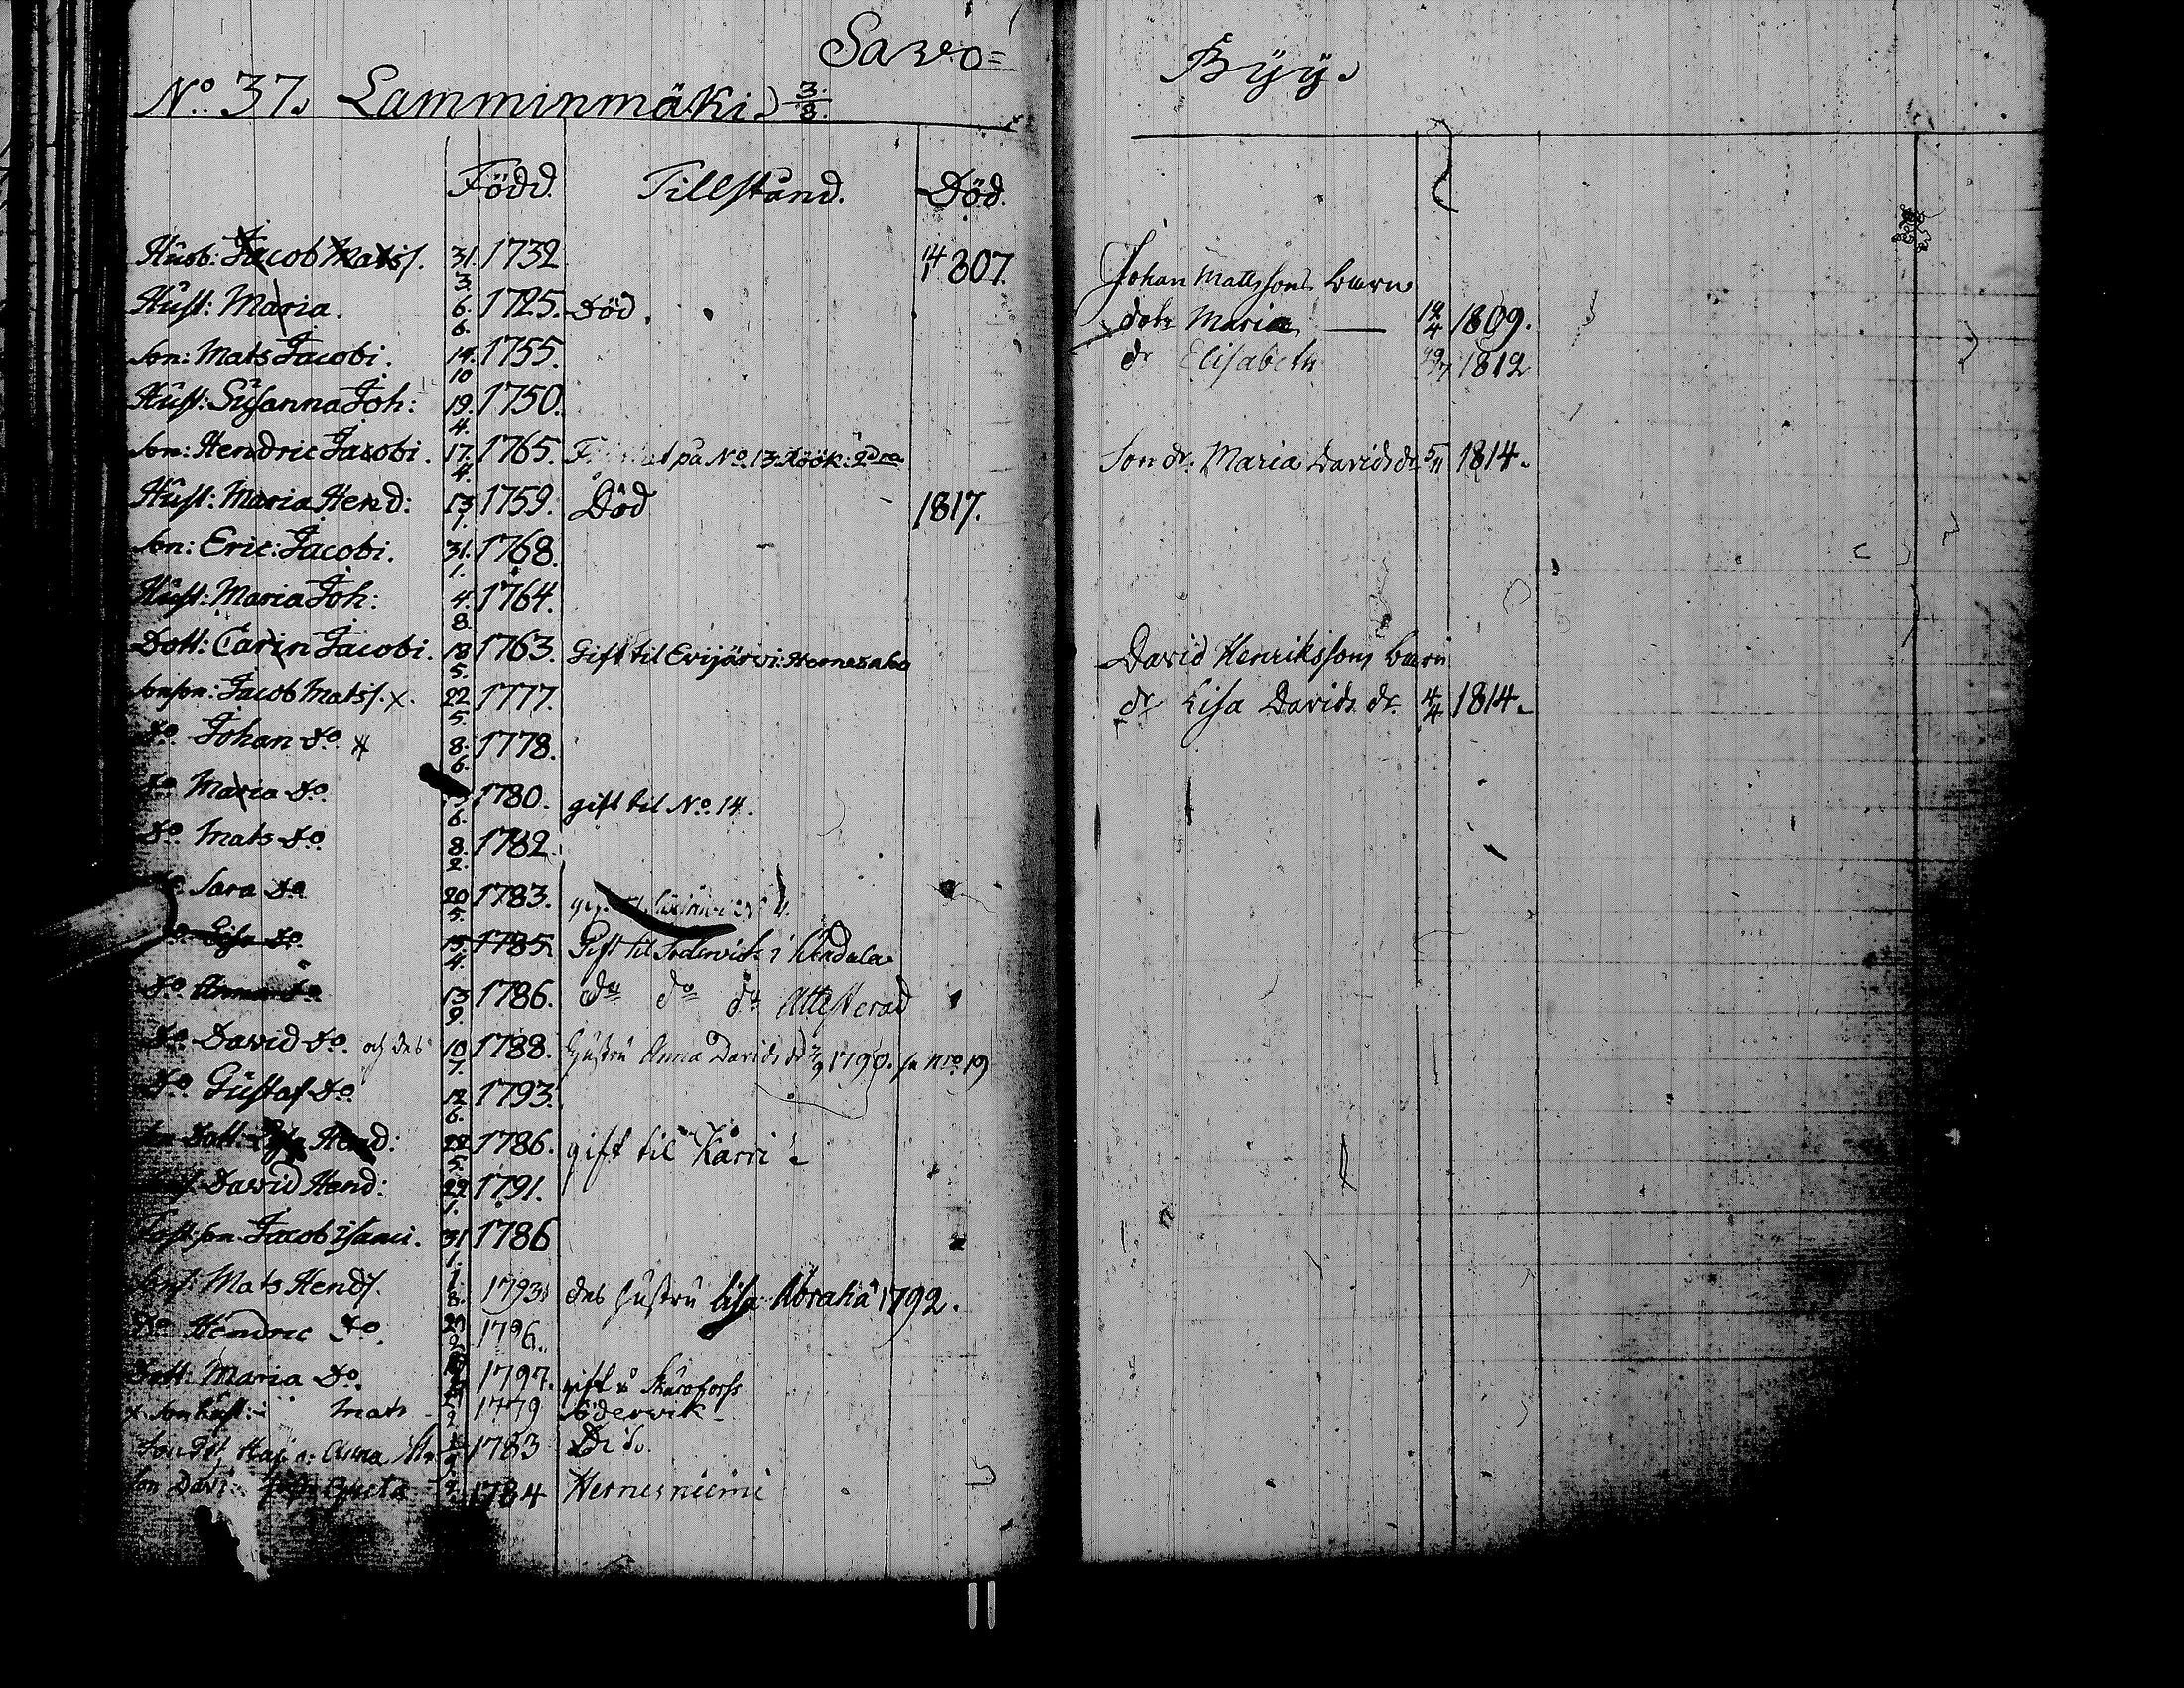 Savo=
No. 37. Lamminmäki. 3/8.
Född. Tillstånd. Död.
Husb: Jacob Matss. 31. 3. 1732 14 807.
Hust: Maria. 6. 6. 1725. Död.
Son: Mats Jacobi. 14. 10 1755.
Hust: Susanna Joh: 19. 4. 1750.
Son: Hendric Jacobi. 17. 4. 1765. på No. 13. Röök: 2dra
Hust: Maria Hend: 13 1. 1759. Död 1817.
Son: Eric: Jacobi. 31. 1. 1768.
Hust: Maria Joh: 4. 8. 1764.
Dott: Carin Jacobi. 18 5. 1763. Gift til Evijärvi: Hernesaho
Sonson: Jacob Matss. x. 22 5. 1777.
Do Johan Do 8. 6. 1778.
Do Maria Do. 6. 1780. gift til No. 14.
Do Mats Do. 8. 2. 1782
Do Sara Do 20 5. 1783. 4.
Do Lisa Do. 15. 4. 1785. Gift til Södervik i
Do Anna Do 13 9. 1786. do do do Attesterad
Do David Do. och des 10 7. 1788. hustru Anna Davids dr 1790. fr nro 19
Do Gustaf Do. 12 6. 1793.
Son Dott: Lisa Hend: 22 5. 1786. gift til Kårri
David Hend: 22 1. 1791.
Fost: son Jacob Isaaci. 31 1. 1786
Sons: Mats Hends. 1. 8. 1793. des hustru Lisa Abraha 1792.
Do Hendric Do 1796.
Dott: Maria Do. 1797. gift
x. Son hust: Mats 1779 Södervik
Anna 1783 Do
Son Greta 1784 Hernesniemi
Byy.
Johan Mattssons barn
dotr Maria 12/4 1809.
dr Elisabeth 29/7 1812
Son dr. Maria Davids dr 5/11 1814.
David Henrikssons barn
dr Lisa Davids dr. 4/4 1814.